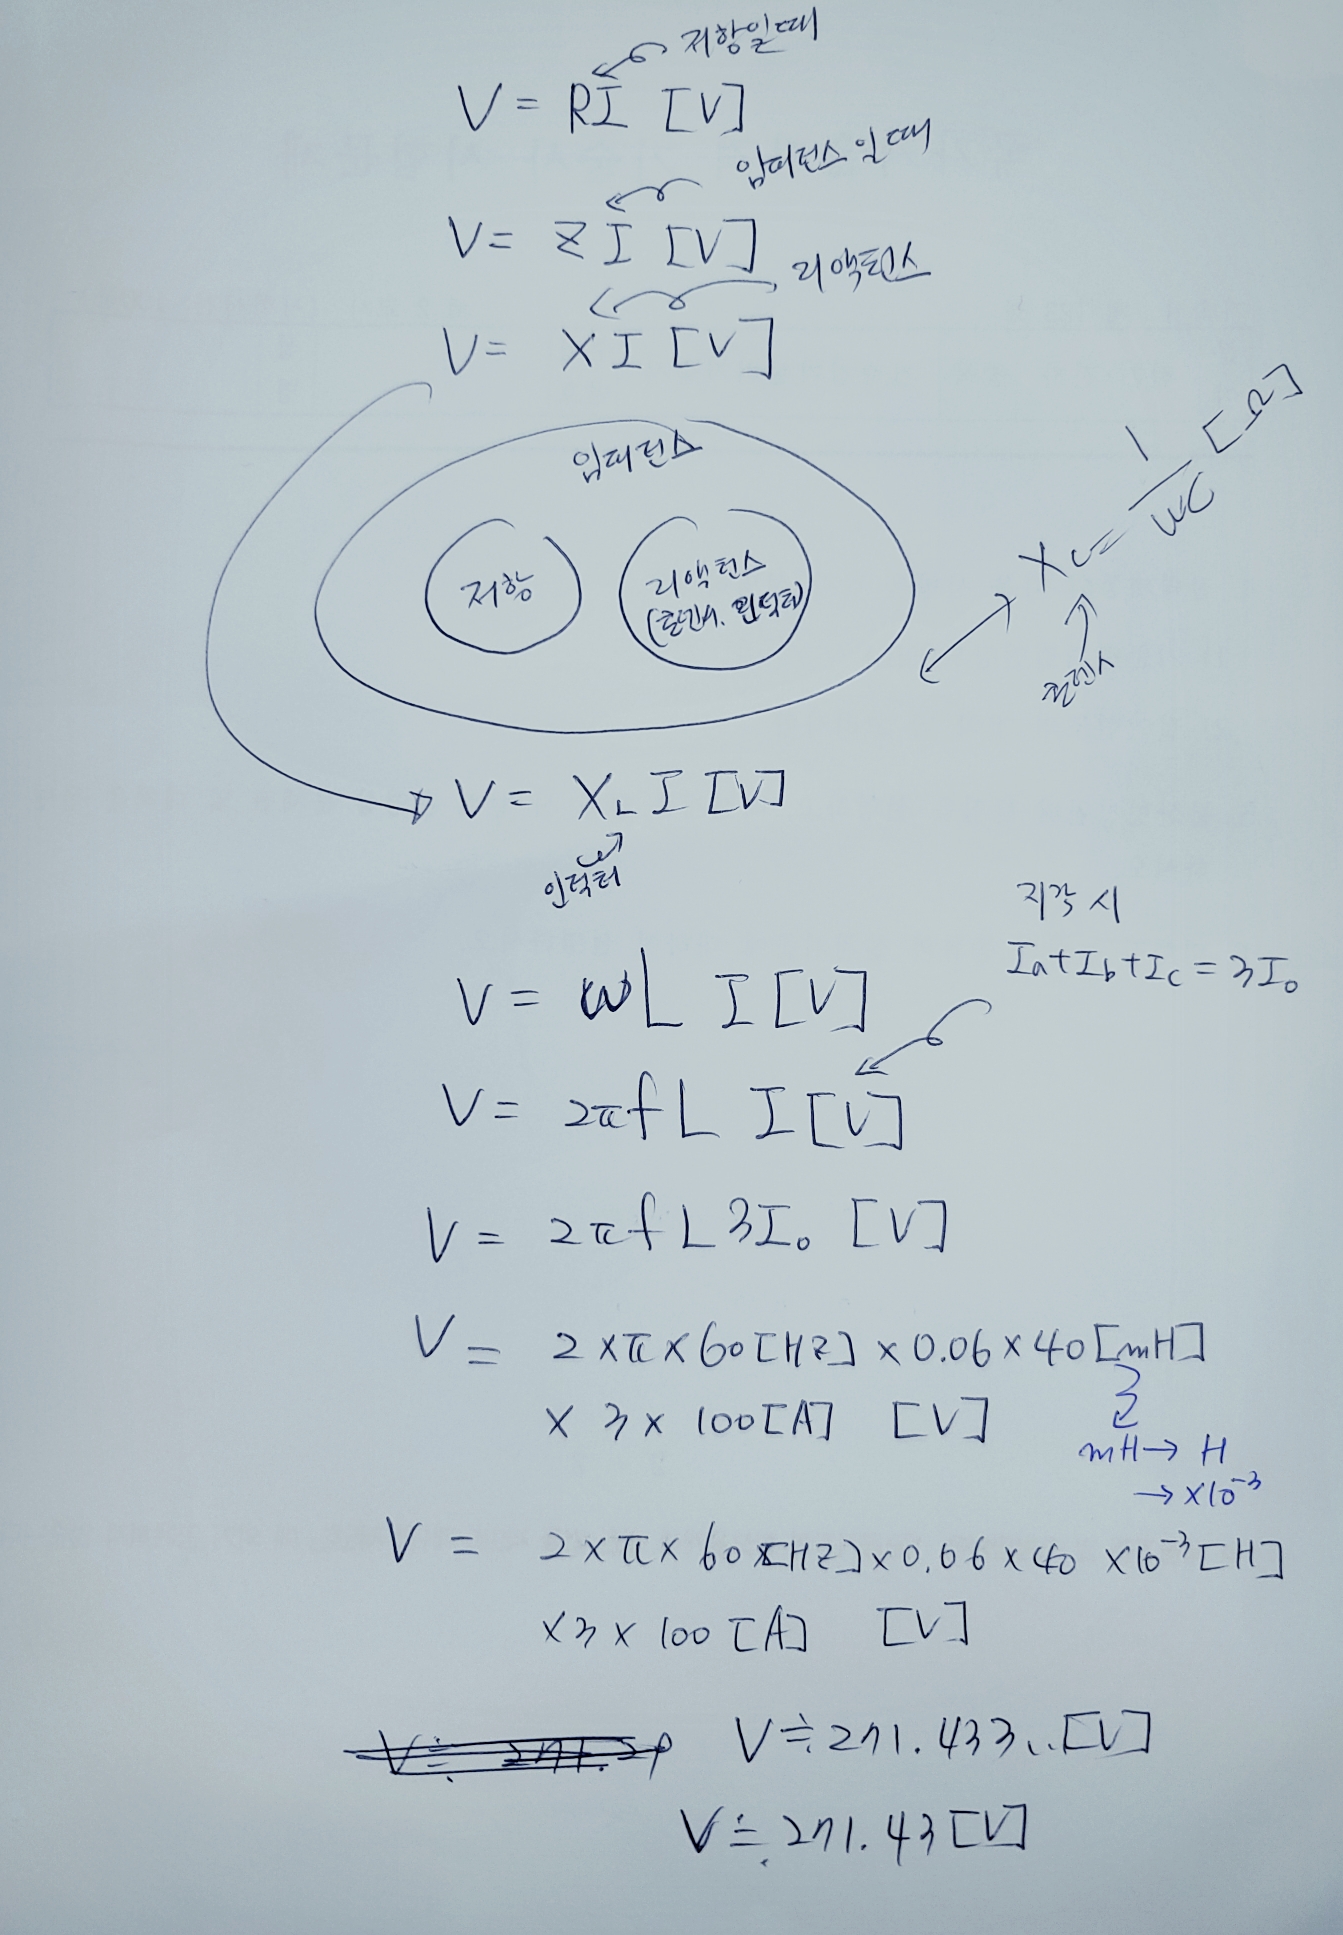 저항일때
V = RI [V]
임피던스 일때
V = Z I [V]
리액턴스
V = X I [V]
임피던스
저항
리액턴스
(콘덴서. 인덕터)
X_C = 1/ωC [Ω]
콘덴서
V = X_L I [V]
인덕터
지락 시
Ia + Ib + Ic = 3I₀
V = ωL I [V]
V = 2πfL I [V]
V = 2πfL 3I₀ [V]
V = 2 × π × 60 [HZ] × 0.06 × 40 [mH]
× 3 × 100 [A] [V]
mH → H
→ ×10⁻³
V = 2 × π × 60 [HZ] × 0.06 × 40 ×10⁻³ [H]
×3 × 100 [A] [V]
V ≒ 271.433... [V]
V ≒ 271.43 [V]